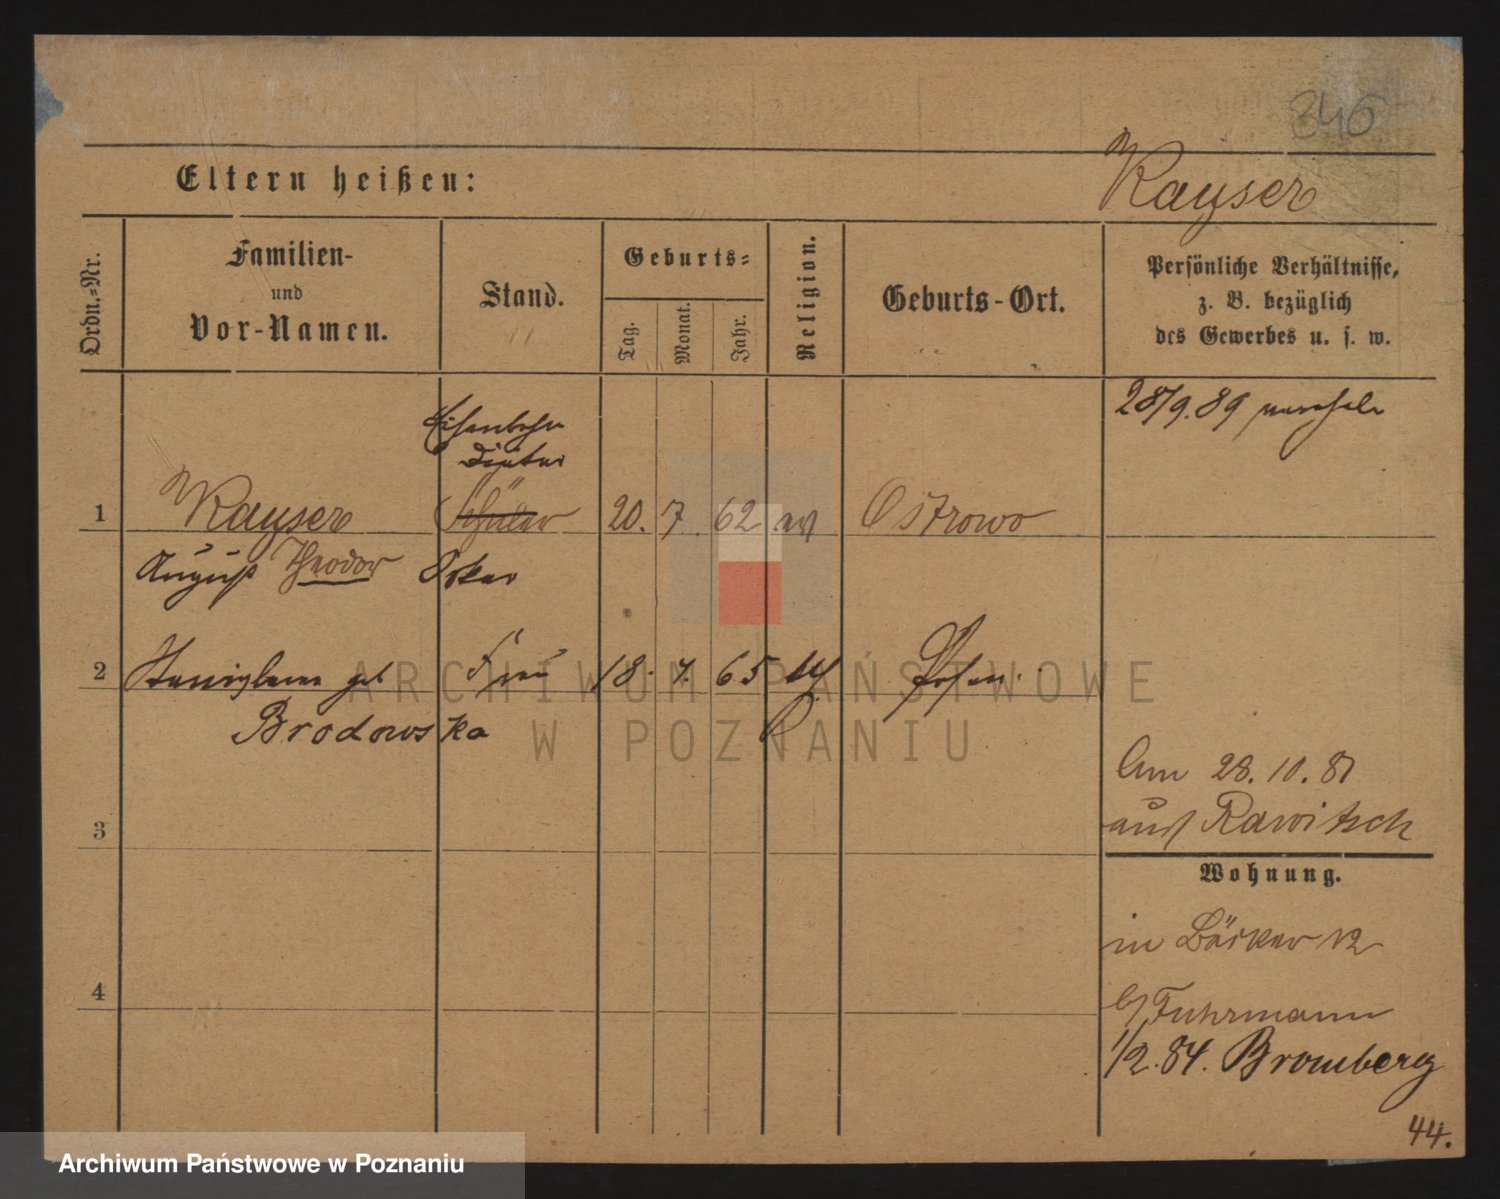 346
Eltern heißen:
Kayser
Ordn.-Nr.
Familien-
und
Vor-Namen.
Stand.
Geburts-
Tag.
Monat.
Jahr.
Religion.
Geburts-Ort.
Persönliche Verhältnisse,
z. B. bezüglich
des Gewerbes u. s. w.
28/9.89
Eisenbahn
Diätar
1 Kayser Schüler 20. 7. 62 ev Ostrowo
August Theodor Oskar
2 Stanislawa geb Frau 18. 4. 65 Posen.
Brodowska
3
Am 28. 10. 81
aus Rawitsch
Wohnung.
in Bäcker 12
4
b/ Fuhrmann
1/2.84. Bromberg
44.
ARCHIWUM PAŃSTWOWE
W POZNANIU
Archiwum Państwowe w Poznaniu